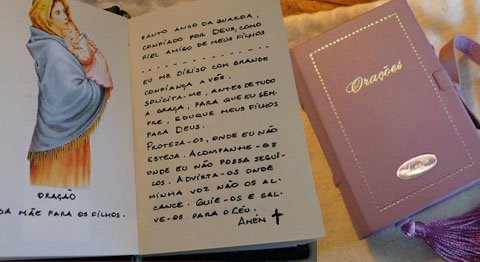 ORAÇÃO
DA MÃE PARA OS FILHOS.
SANTO ANJO DA GUARDA,
CONFIADO POR DEUS, COMO
FIEL AMIGO DE MEUS FILHOS
EU ME DIRIJO COM GRANDE
CONFIANÇA A VÓS.
SOLICITA-ME, ANTES DE TUDO
A GRAÇA, PARA QUE EU SEM-
PRE, EDUQUE MEUS FILHOS
PARA DEUS.
PROTEJA-OS, ONDE EU NÃO
ESTEJA. ACOMPANHE-OS
ONDE EU NÃO POSSA SEGUÍ-
LOS. ADVIRTA-OS ONDE
MINHA VOZ NÃO OS AL-
CANCE. GUIE-OS E SAL-
VE-OS PARA O CÉU.
AMÉN
Orações